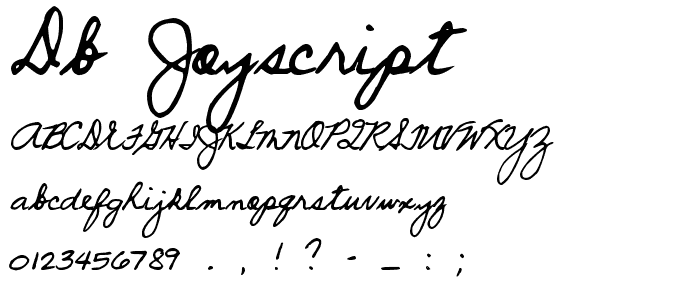 Db Joyscript
ABCDEFGHIJKLMNOPQRSTUVWXYZ
abcdefghijklmnopqrstuvwxyz
0123456789 . , ! ? - _ : ;